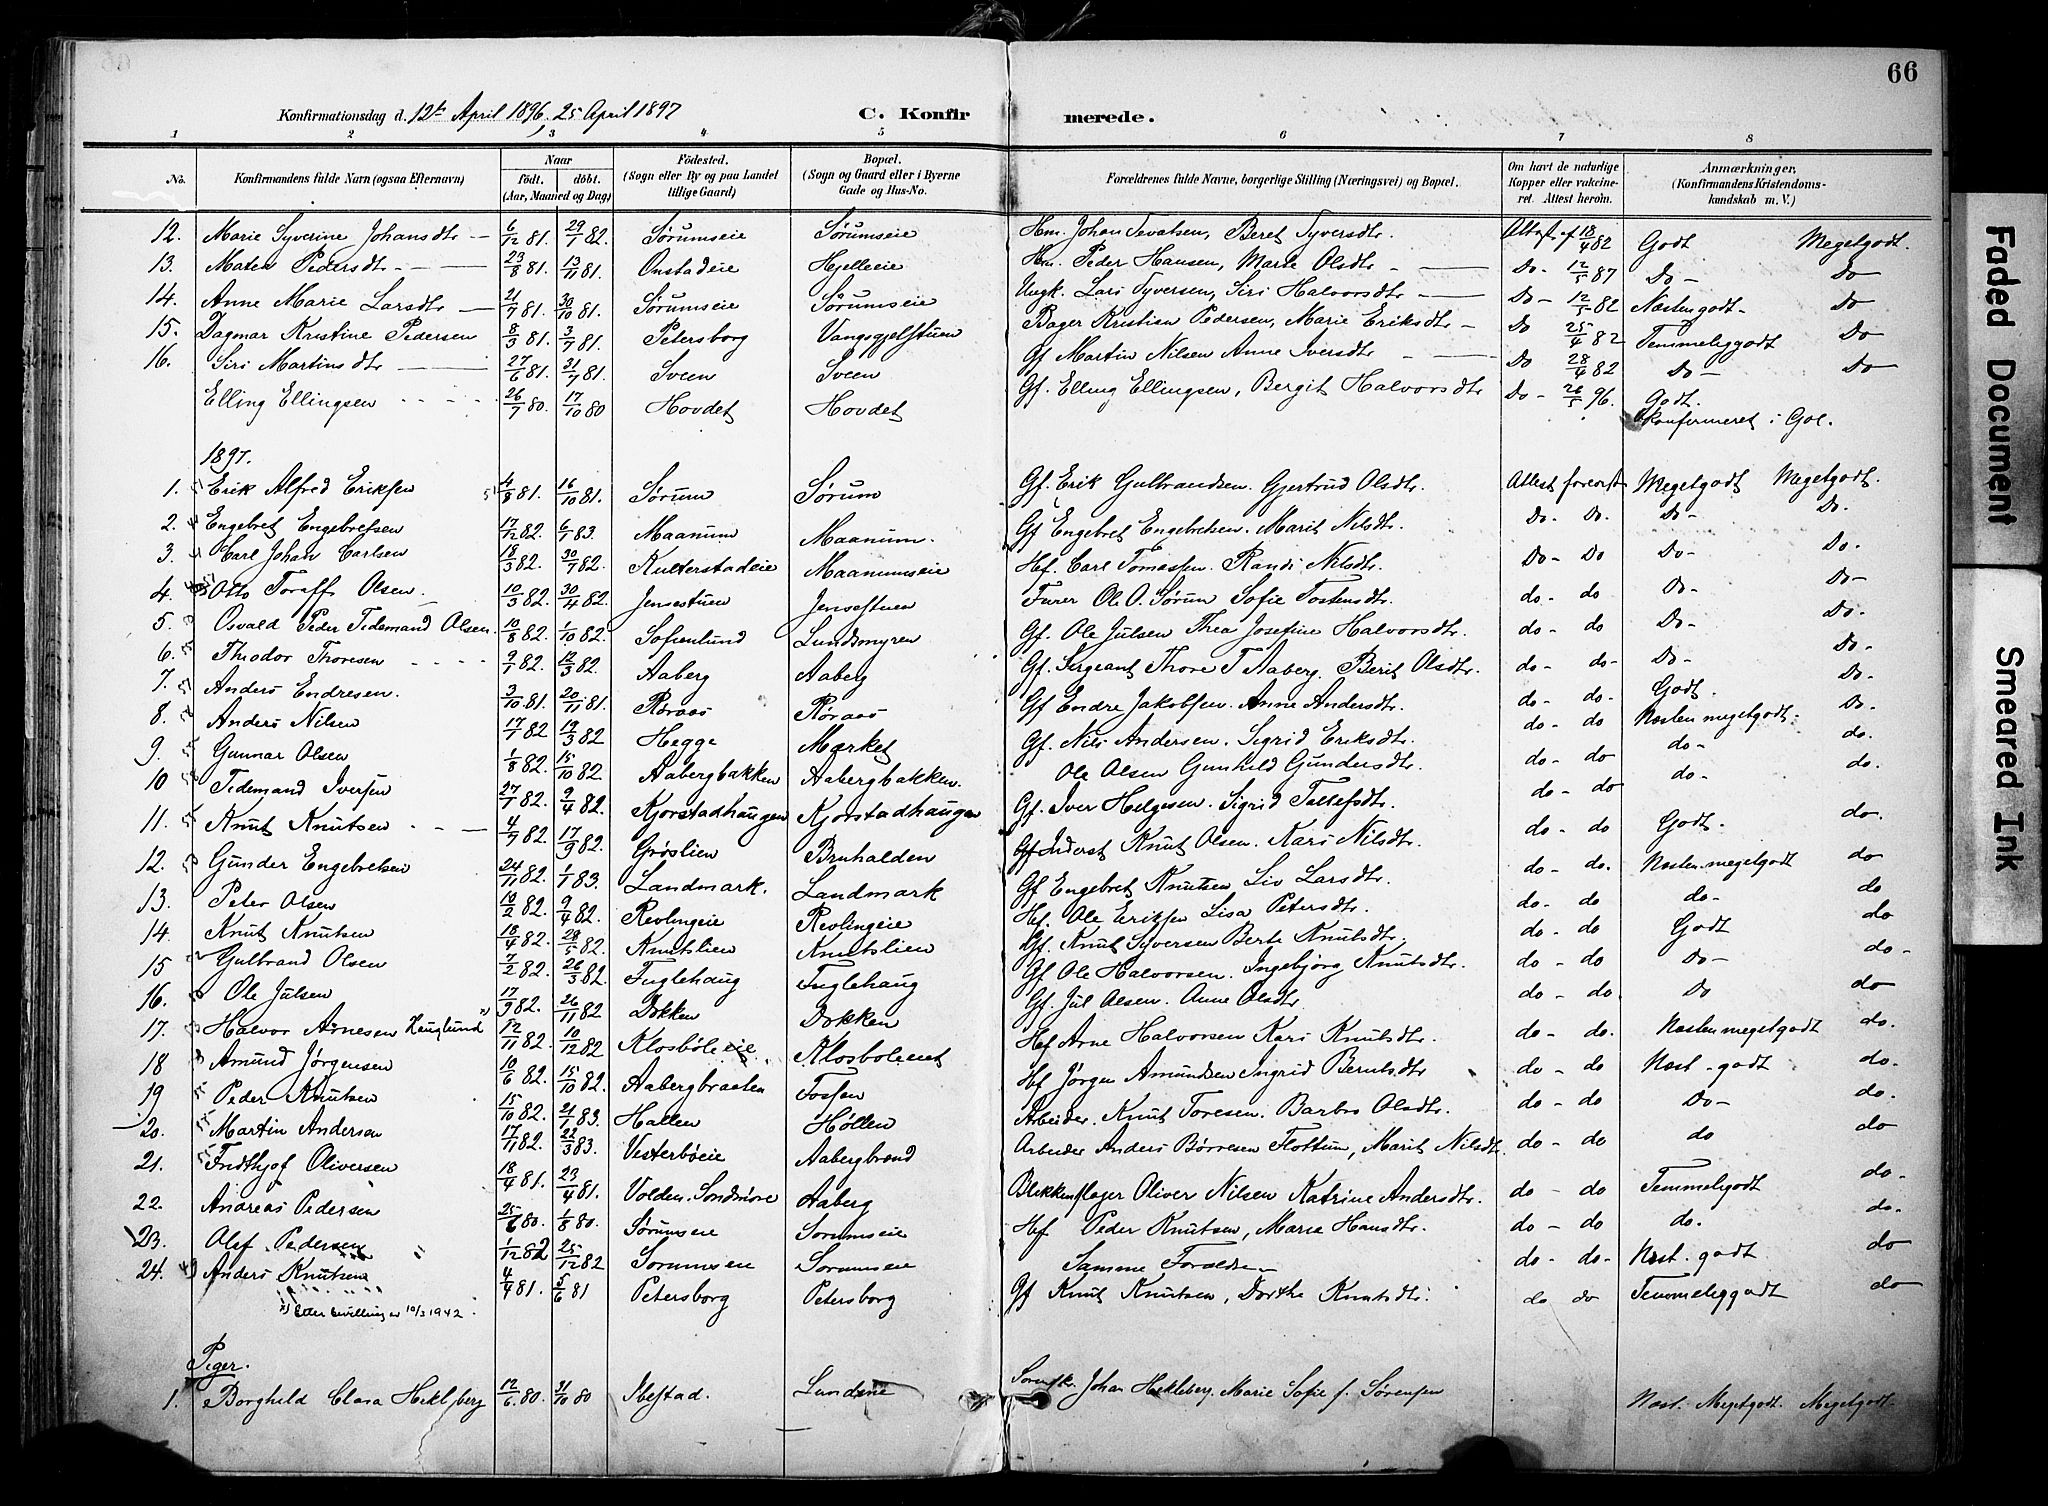 66
Konfirmationsdag d. 12te April 1896, 25 April 1897 C. Konfirmerede.
1 2 3 4 5 6 7 8
No. Konfirmandens fulde Navn (ogsaa Efternavn) Naar födt. döbt. (Aar, Maaned og Dag) Födested. (Sogn eller By og paa Landet tillige Gaard) Bopæl. (Sogn og Gaard eller i Byerne Gade og Hus-No. Forældrenes fulde Navne, borgerlige Stilling (Næringsvei) og Bopæl. Om havt de naturlige Kopper eller vaccineret. Attest herom. Anmærkninger. (Konfirmandens Kristendomskundskab m. V.)
12. Marie Syverine Johansdtr 6/12 81. 29/1 82. Sørumseie Sørumseie Hm. Johan Beret Syversdtr. Attest af 18/4 82 Godt Megetgodt.
13. Maten Pedersdtr 23/8 81. 13/11 81. Onstadeie Hjelleeie Hm. Peder Hansen, Marie Olsdtr Do 12/5 87 Do Do
14. Anne Marie Larsdtr 21/7 81. 30/10 81. Sørumseie Sørumseie Ungk. Lars Syversen, Siri Halvorsdtr Do 12/5 82 Næstengodt Do
15. Dagmar Kristine Pedersen 8/3 81. 3/7 81. Petersborg Vangsgjelstuen Bager Kristian Pedersen, Marie Eriksdtr Do 25/4 82 Temmeliggodt Do
16. Siri Martinsdtr 27/6 81. 31/7 81. Sveen Sveen Gf Martin Nilsen Anne Iversdtr Do 28/4 82 Do Do
Elling Ellingsen 26/7 80. 17/10 80 Hovdet Hovdet Gf. Elling Ellingsen, Bergit Halvorsdtr Do 26/5 96. Godt.
konfirmeret i Gol.
1897.
1. Erik Alfred Eriksen 4/9 81. 16/10 81. Sørum Sørum Gf. Erik Gulbrandsen. Gjertrud Olsdtr. Attest forevist Megetgodt Megetgodt.
2. Engebret Engebretsen 17/12 82. 6/1 83. Maanum Maanum. Gf Engebret Engebretsen. Marit Nilsdtr. Do Do. Do Do.
3. Carl Johan Carlsen 18/3 82. 30/7 82. Kulterstadeie Maanumseie Hf. Carl Tomassen. Randi Nilsdtr. Do Do Do Do.
4. Otto Toralf Olsen 10/3 82. 30/4 82. Jensestuen Jensestuen Furer Ole O. Sørum Sofie Tostensdtr. do do Do Do
5. Osvald Peder Tidemand Olsen. 10/8 82. 1/10 82. Sofienlund Lundsmyren Gf. Ole Julsen Thea Josefine Halvorsdtr. do do Do Do.
6. Theodor Thoresen 9/1 82. 12/3 82. Aaberg Aaberg Gf. Sergeant Thore T Aaberg. Berit Olsdtr. do do Do Do.
7. Anders Endresen. 3/10 81. 20/11 81. Røraas Røraas Gf Endre Jakobsen. Anne Andersdtr. do do. Godt. Do.
8. Anders Nilsen 17/7 82 19/3 82 Hegge Mærket Gf. Nils Andersen. Sigrid Eriksdtr. do do Næsten megetgodt. Do.
9. Gunnar Olsen 1/8 82. 15/10 82. Aabergbakken Aabergbakken. Ole Olsen Gunhild Gundersdtr. do do do do.
10 Tidemand Iversen 27/1 82. 9/4 82. Kjorstadhaugen Kjorstadhaugen Gf. Iver Helgesen. Sigrid Tollefsdtr. do do do do.
11. Knut Knutsen 4/7 82. 17/9 82. Grøslien Bruhalden Inderst Knut Olsen. Kari Nilsdtr. do do Godt. do.
12. Gunder Engebretsen 24/11 82. 1/1 83. Landmark. Landmark Gf Engebret Knutsen Liv Larsdtr. do do. Næsten megetgodt do
13. Peter Olsen 19/2 82. 9/4 82. Revlingeie Revlingeie Hf. Ole Eriksen Lisa Petersdtr. do do do do
14. Knut Knutsen 18/4 82. 28/5 82. Knutslien Knutslien Gf. Knut Syversen Berte Knutsdtr. do do Godt do
15 Gulbrand Olsen 7/2 82. 26/3 82. Fuglehaug Fuglehaug Gf Ole Halvorsen. Ingebjørg Knutsdtr. do do Do do
16. Ole Julsen 17/9 82. 26/11 82 Dokken Dokken Gf. Jul Olsen. Anne Olsdtr do do. Do do
17. Halvor Arnesen Hauglund x) 12/11 82. 10/12 82 Klosbøleie Klosboleiet Hf Arne Halvorsen Kari Knutsdtr. do do. Næsten megetgodt do.
18 Amund Jørgensen 10/6 82. 15/10 82. Aabergbraaten Fossen Hf Jørgen Amundsen Ingrid Berntsdtr do do Næst. godt do.
19 Peder Knutsen 15/10 82. 21/1 83. Hallen Høllen Arbeider. Knut Toresen. Barbro Olsdtr. do do Do do.
20. Martin Andersen 17/11 82. 22/3 83. Vesterbøeie Aabergbraud Arbeider Anders Børresen Flottum, Marit Nilsdtr. do do do do
21. Fridthjof Oliversen 18/4 81. 23/4 81. Volden. Søndmøre Aaberg Blikkenslager Oliver Nilsen Katrine Andersdtr. do do Temmeligodt do.
22. Andreas Pedersen 25/6 80. 1/8 80. Sørumseie Sorumseie Hf Peder Knutsen, Marie Hansdtr. do do do. do.
23. Olaf Pedersen " 1/12 82 25/12 82 Sorumseie Sorumseie Samme Forældre do do. Næst. godt do
24. Anders Knutsen 4/4 81. 5/6 81 Petersborg Petersborg Gf Knut Knutsen, Dorthe Knutsdtr. do do Temmeliggodt do
x) Etter bevilling av 10/3 1942.
Piger.
1. Borghild Clara Heklsberg 12/6 80. 31/10 80 Ibestad. Lundene Sorenskr. Johan Hekleberg. Marie Sofie f. Sørensen Næst. Megetgodt. Megetgodt.
Faded Document
Smeared Ink